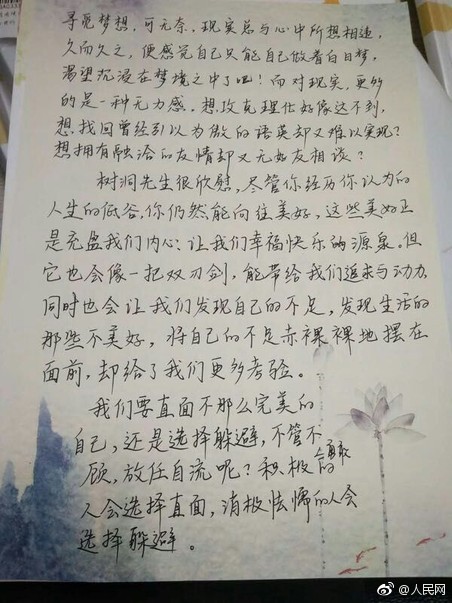 寻觅梦想，可无奈，现实总与心中所想相违，
久而久之，便感觉自己只能自己做着白日梦，
渴望沉浸在梦境之中了吧！而对现实，更多
的是一种无力感。想攻克理化好像达不到，
想找回曾经引以为傲的语英却又难以实现？
想拥有融洽的友情却又无好友相谈？
树洞先生很欣慰，尽管你经历你以为的
人生的低谷，你仍然能向往美好，这些美好正
是充盈我们内心；让我们幸福快乐的源泉。但
它也会像一把双刃剑，能带给我们追求与动力，
同时也会让我们发现自己的不足，发现生活的
那些不美好，将自己的不足赤裸裸地摆在
面前，却给了我们更多考验。
我们要直面不那么完美的
自己，还是选择躲避，不管不
顾，放任自流呢？积极勇敢的
人会选择直面，消极怯懦的人会
选择躲避。
@人民网